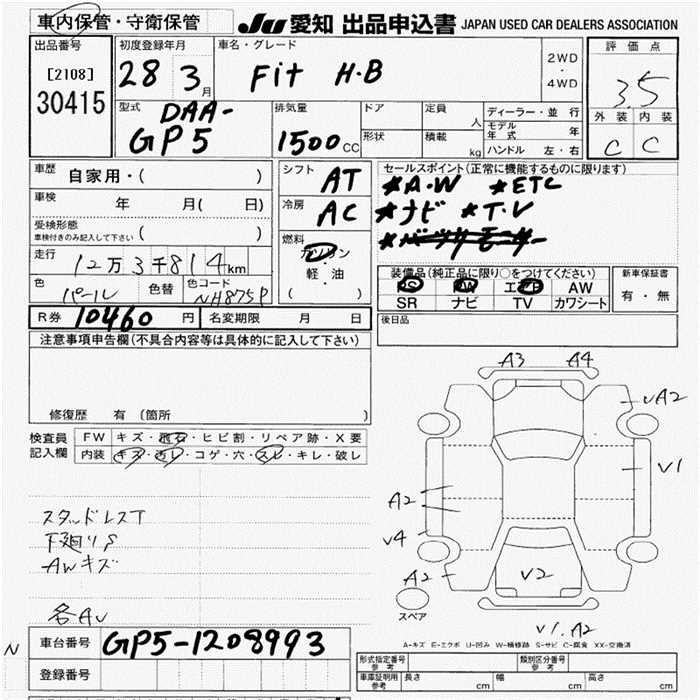 車内保管・守衛保管
JU 愛知 出品申込書 JAPAN USED CAR DEALERS ASSOCIATION
出品番号
[2108]
30415
初度登録年月
28 3月
車名・グレード
Fit H・B
2WD
・
4WD
評価点
3.5
外装 内装
C C
型式 DAA-
GP5
排気量
1500cc
ドア
形状
定員 人
積載 kg
ディーラー・並行
モデル年式 年
ハンドル 左・右
車歴 自家用・( )
車検 年 月( 日)
受検形態
車検付きのみ記入して下さい ( )
走行 12万3千814km
色 パール 色替 色コード NH875P
シフト AT
冷房 AC
燃料
ガソリン
・
軽・油
( )
セールスポイント(正常に機能するものに限ります)
*A・W *ETC
*ナビ *T・V
装備品(純正品に限り○をつけてください)
PS PW エアB AW
SR ナビ TV カワシート
新車保証書
有・無
R券 10460 円 名変期限 月 日
後日品
注意事項申告欄(不具合内容等は具体的に記入して下さい)
修復歴 有 (箇所 )
検査員
記入欄
FW キズ・飛石・ヒビ割・リペア跡・X要
内装 キズ・汚レ・コゲ・穴・スレ・キレ・破レ
スタッドレスT
下廻りS
AWキズ
各AU
A3 A4
UA2
V1
A2
V4
A2
V2
スペア
V1.A2
A-キズ E-エクボ U-凹み W-補修跡 S-サビ C-腐食 XX-交換済
N
車台番号 GP5-1208993
登録番号
形式指定番号
参考
類別区分番号
参考
車庫証明用
参考
長さ cm 幅 cm 高さ cm